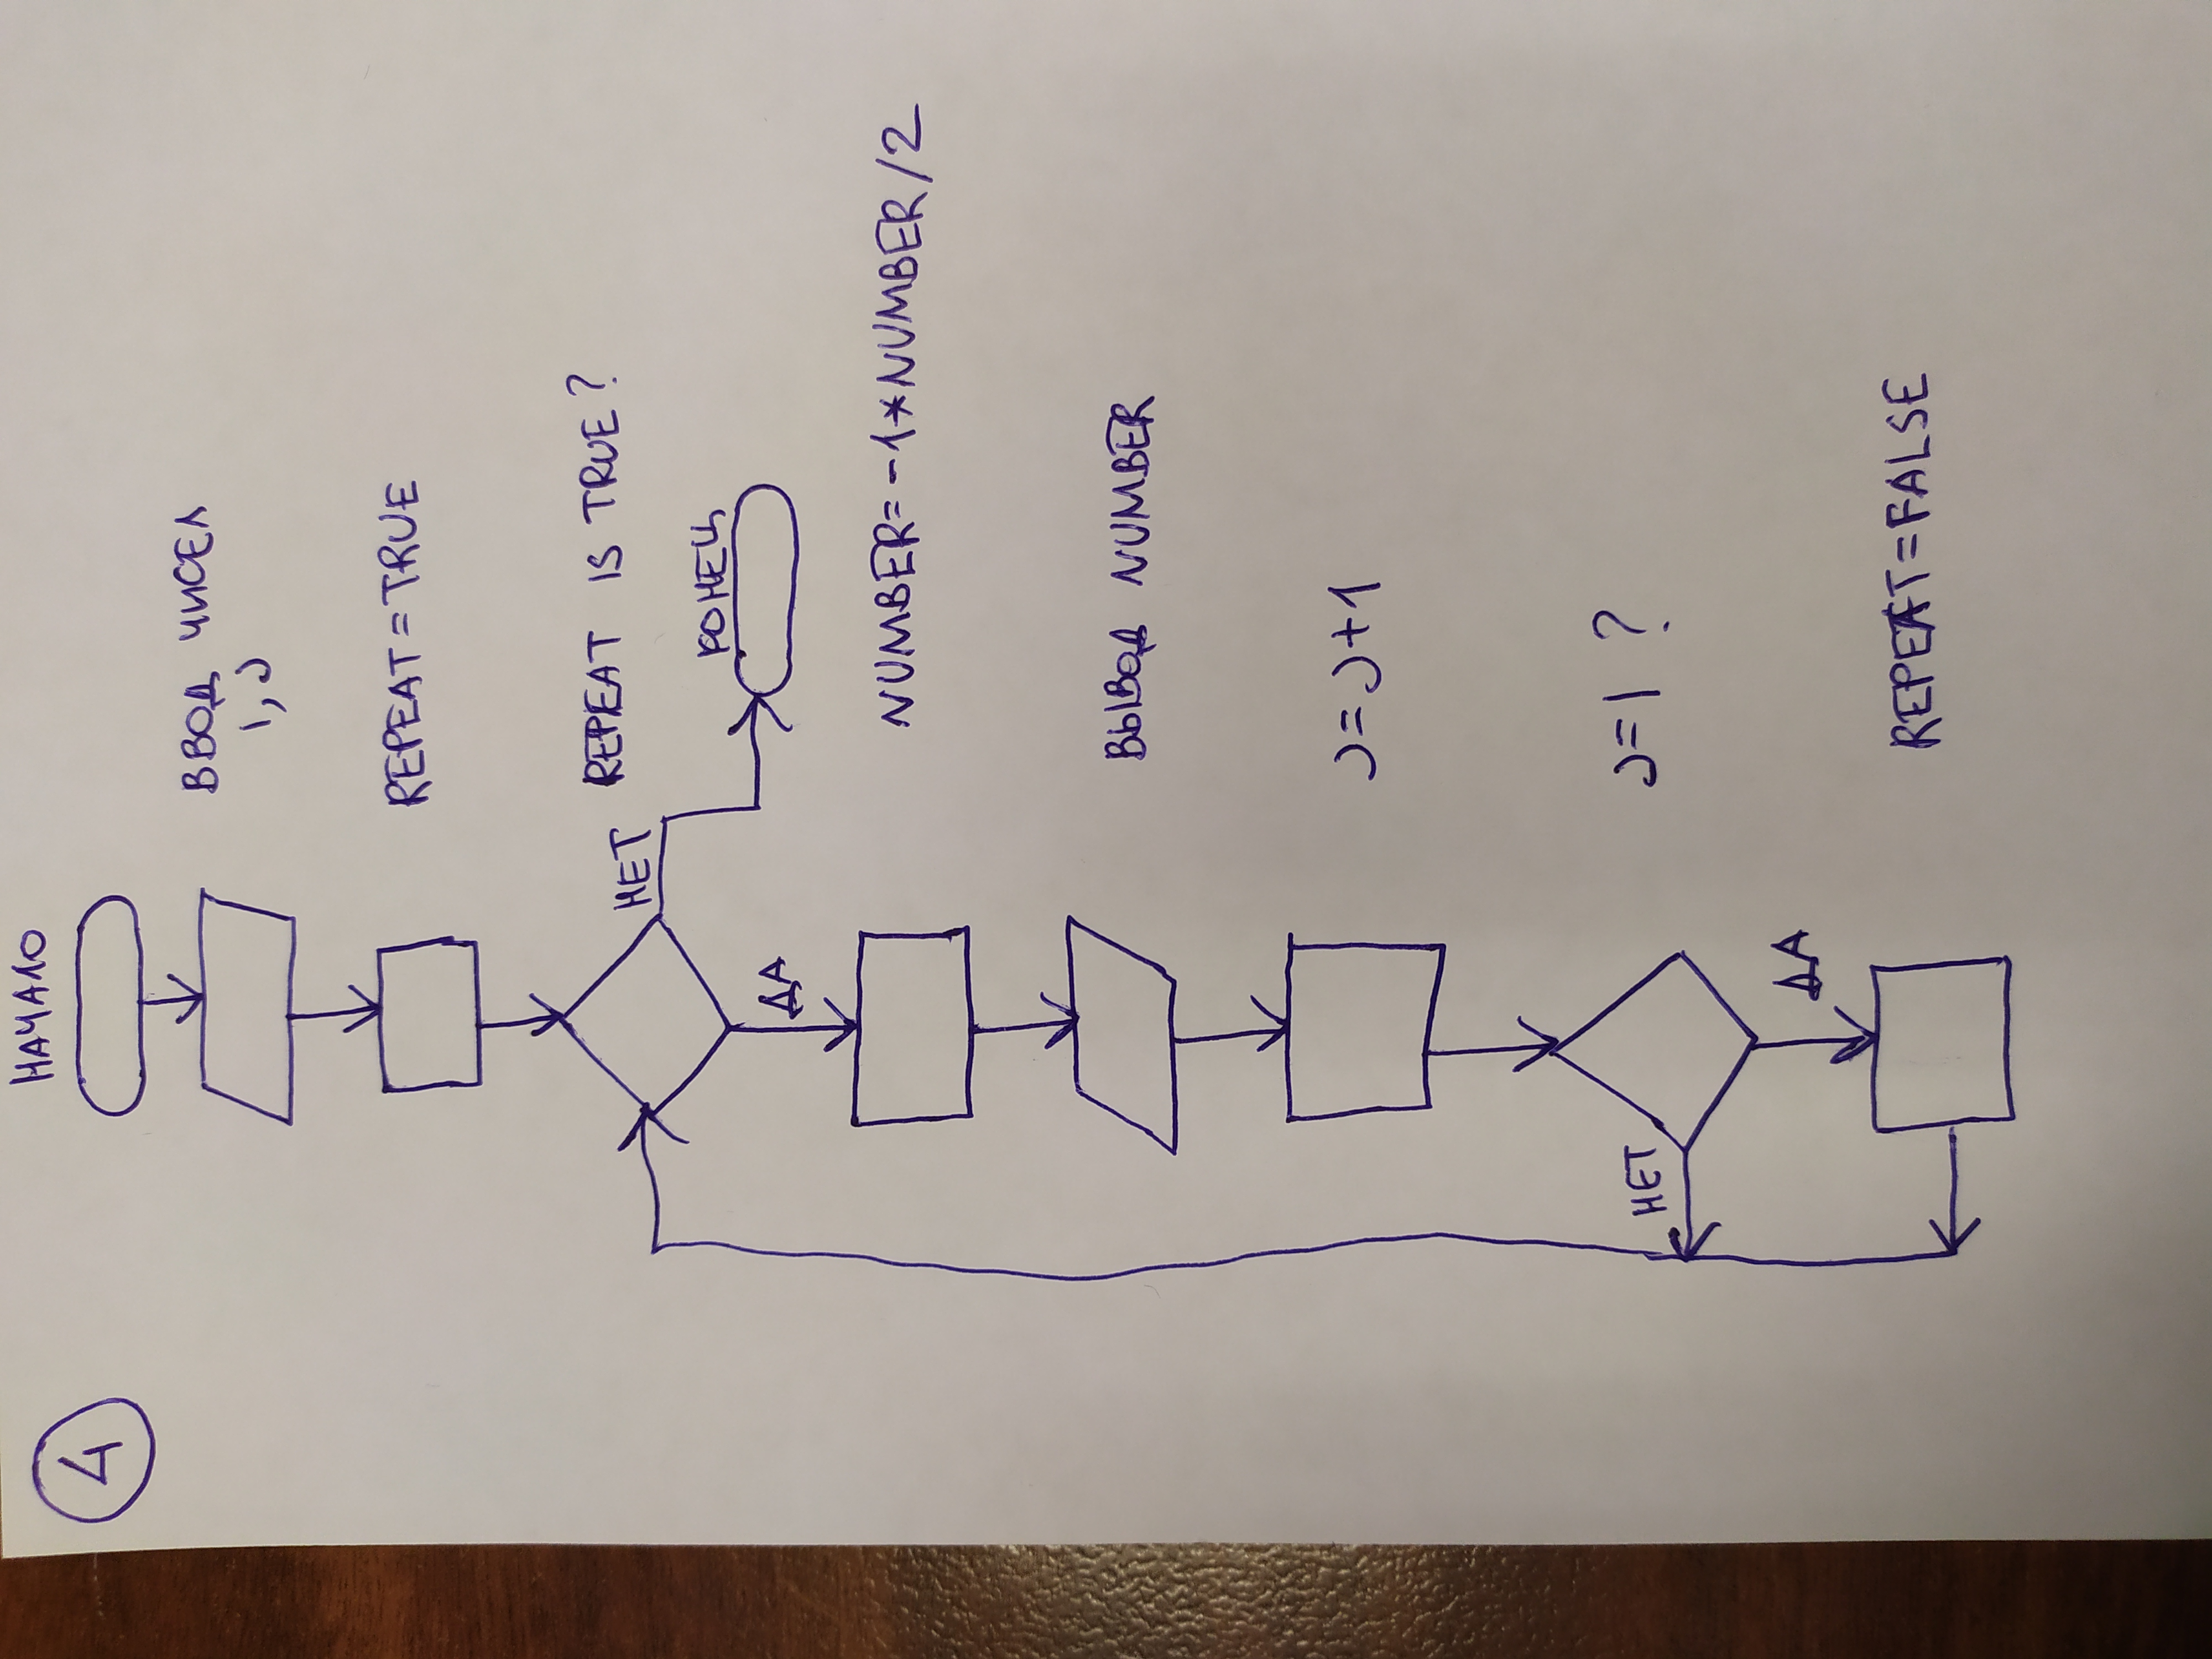 4
НАЧАЛО
ВВОД ЧИСЕЛ
I, J
REPEAT=TRUE
REPEAT IS TRUE?
НЕТ
КОНЕЦ
ДА
NUMBER=-1*NUMBER/2
ВЫВОД NUMBER
J=J+1
J=I ?
НЕТ
ДА
REPEAT=FALSE